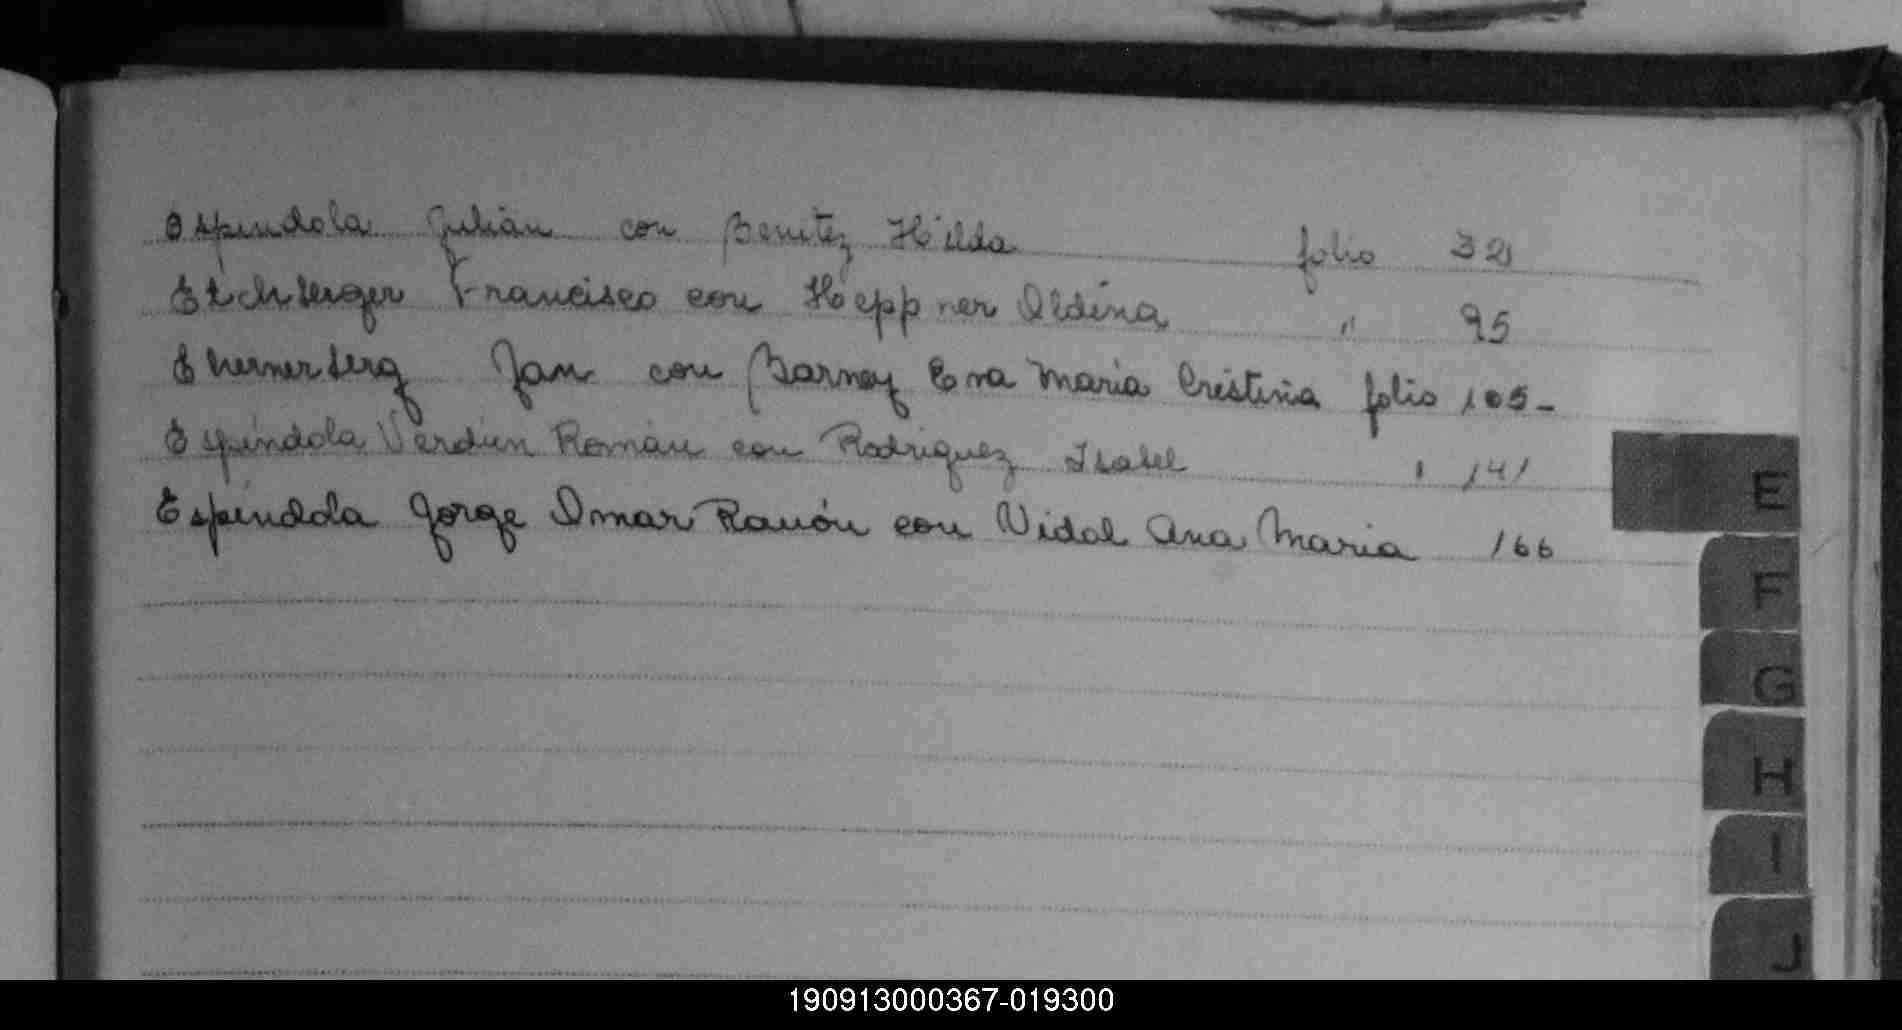 Espindola Julián con Benitez Hilda folio 32
Eichberger Francisco con Hoeppner Aldina " 95
Juan con Barney Eva Maria Cristina folio 105-
Espíndola Verdún Román con Rodriguez Isabel " 141
Espíndola Jorge Omar Ramón con Vidal Ana Maria 166
E
F
G
H
I
J
190913000367-019300